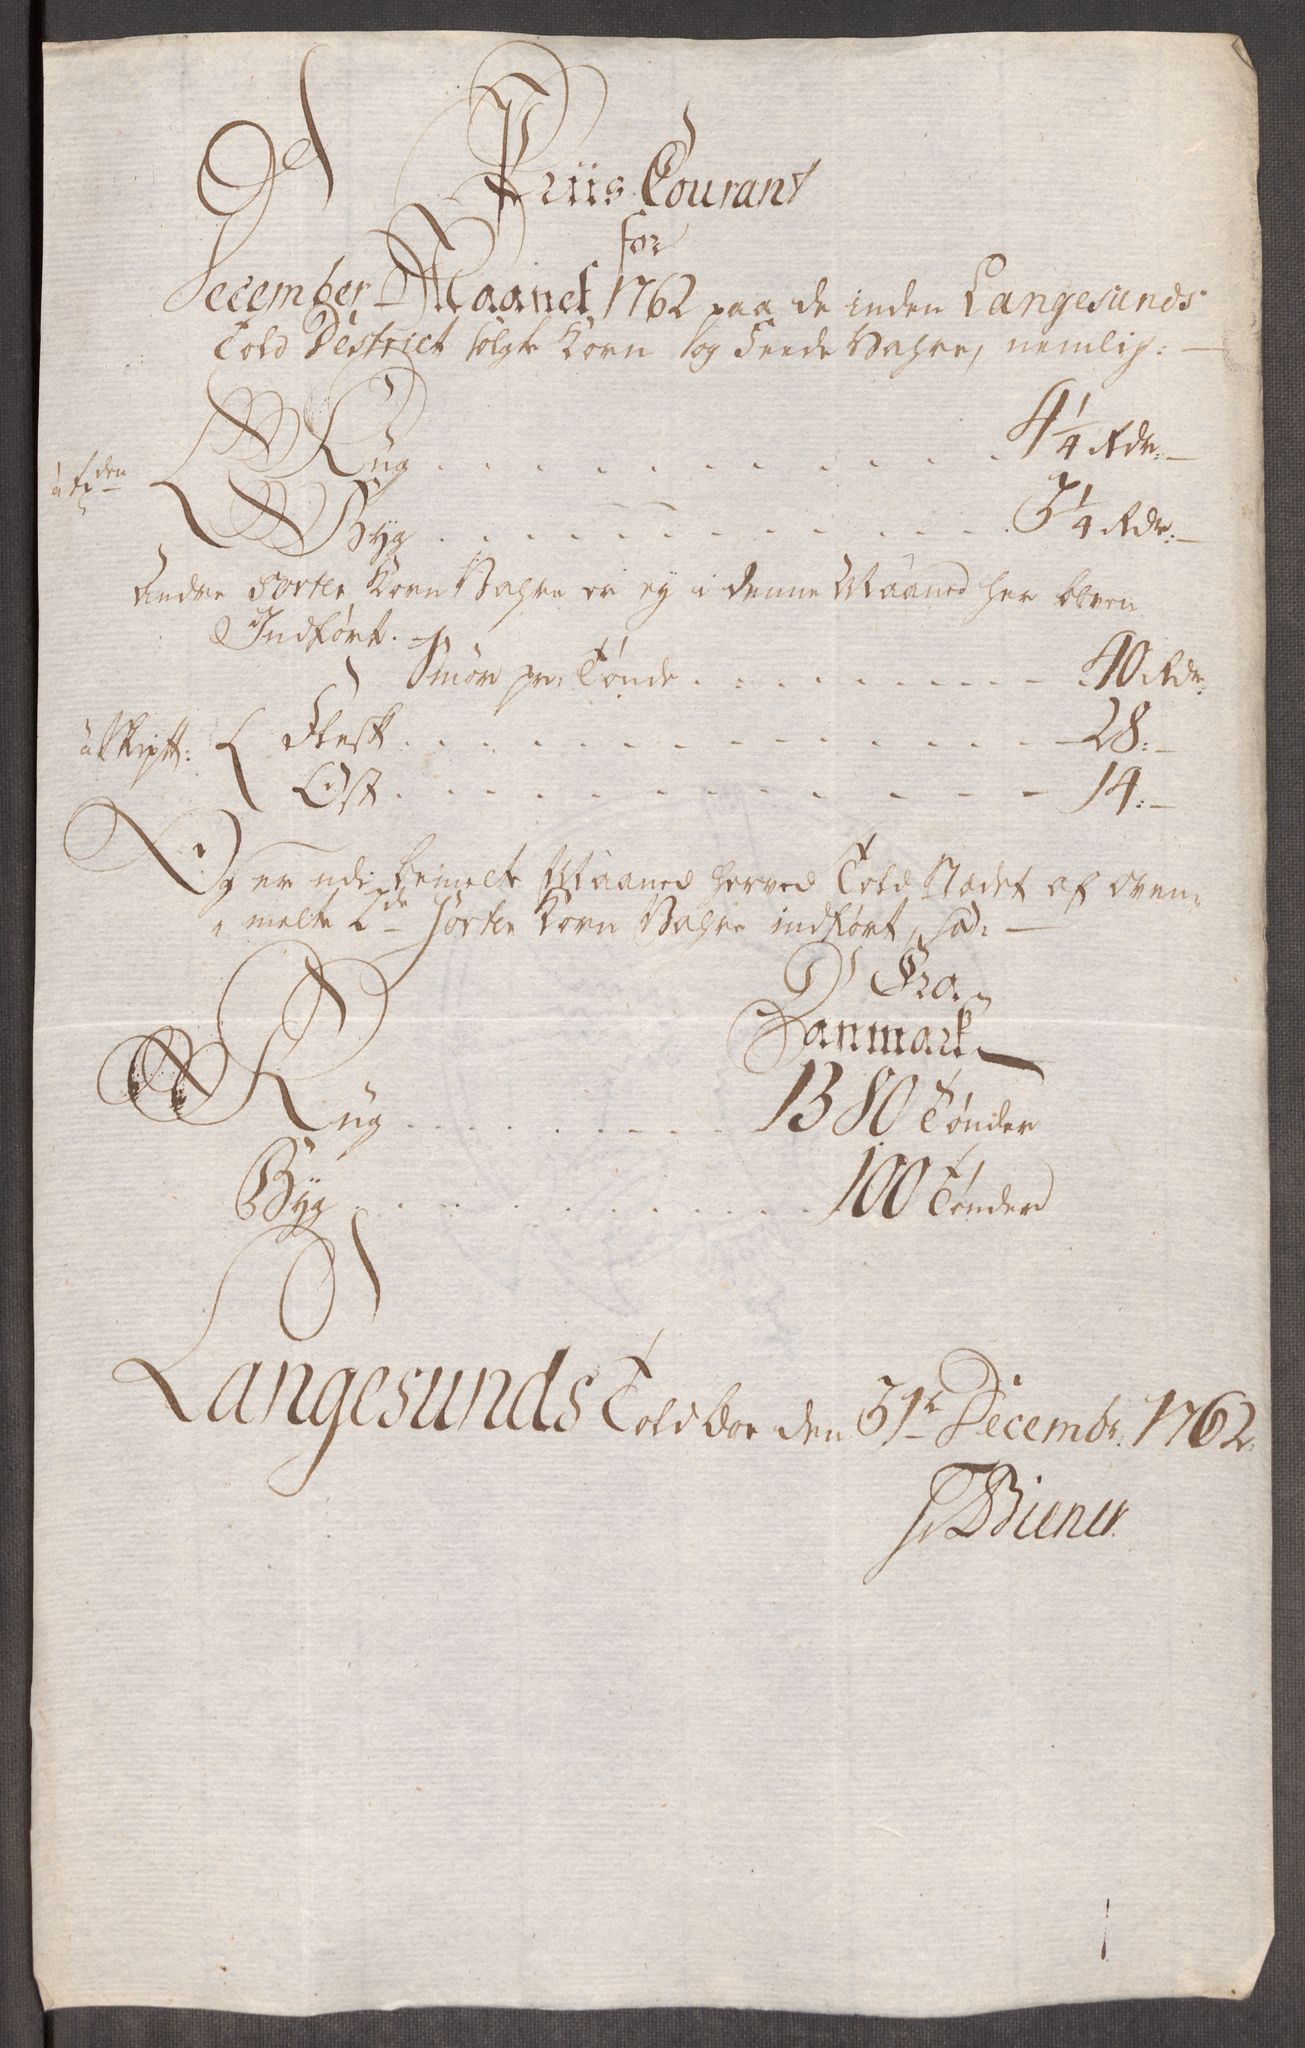 Priis Courant
for
December Maanet 1762 paa de inden Langesunds
Told District solgte Korn og Feede Vahre, nemlig:
Rug . . . 4 1/4 Rdr:
à Tde
Byg . . . 3 1/4 Rdr:
Andre Sorter Korn Vahre er ey i denne Maaned her bleven
Indført.
Smør pr: Tønde . . . 40 Rdr:
à Skiptt: Flesk . . . 28:
Ost . . . 14:
Og er udi bemelte Maaned herved Told Stædet af oven-
melte 2de Sorter Korn Vahre indført, sad:
Fra
Danmark
Rug . . . 1380 Tønder
Byg . . . 100 Tønder
Langesunds Toldboe den 31te Decembr: 1762.
Biener